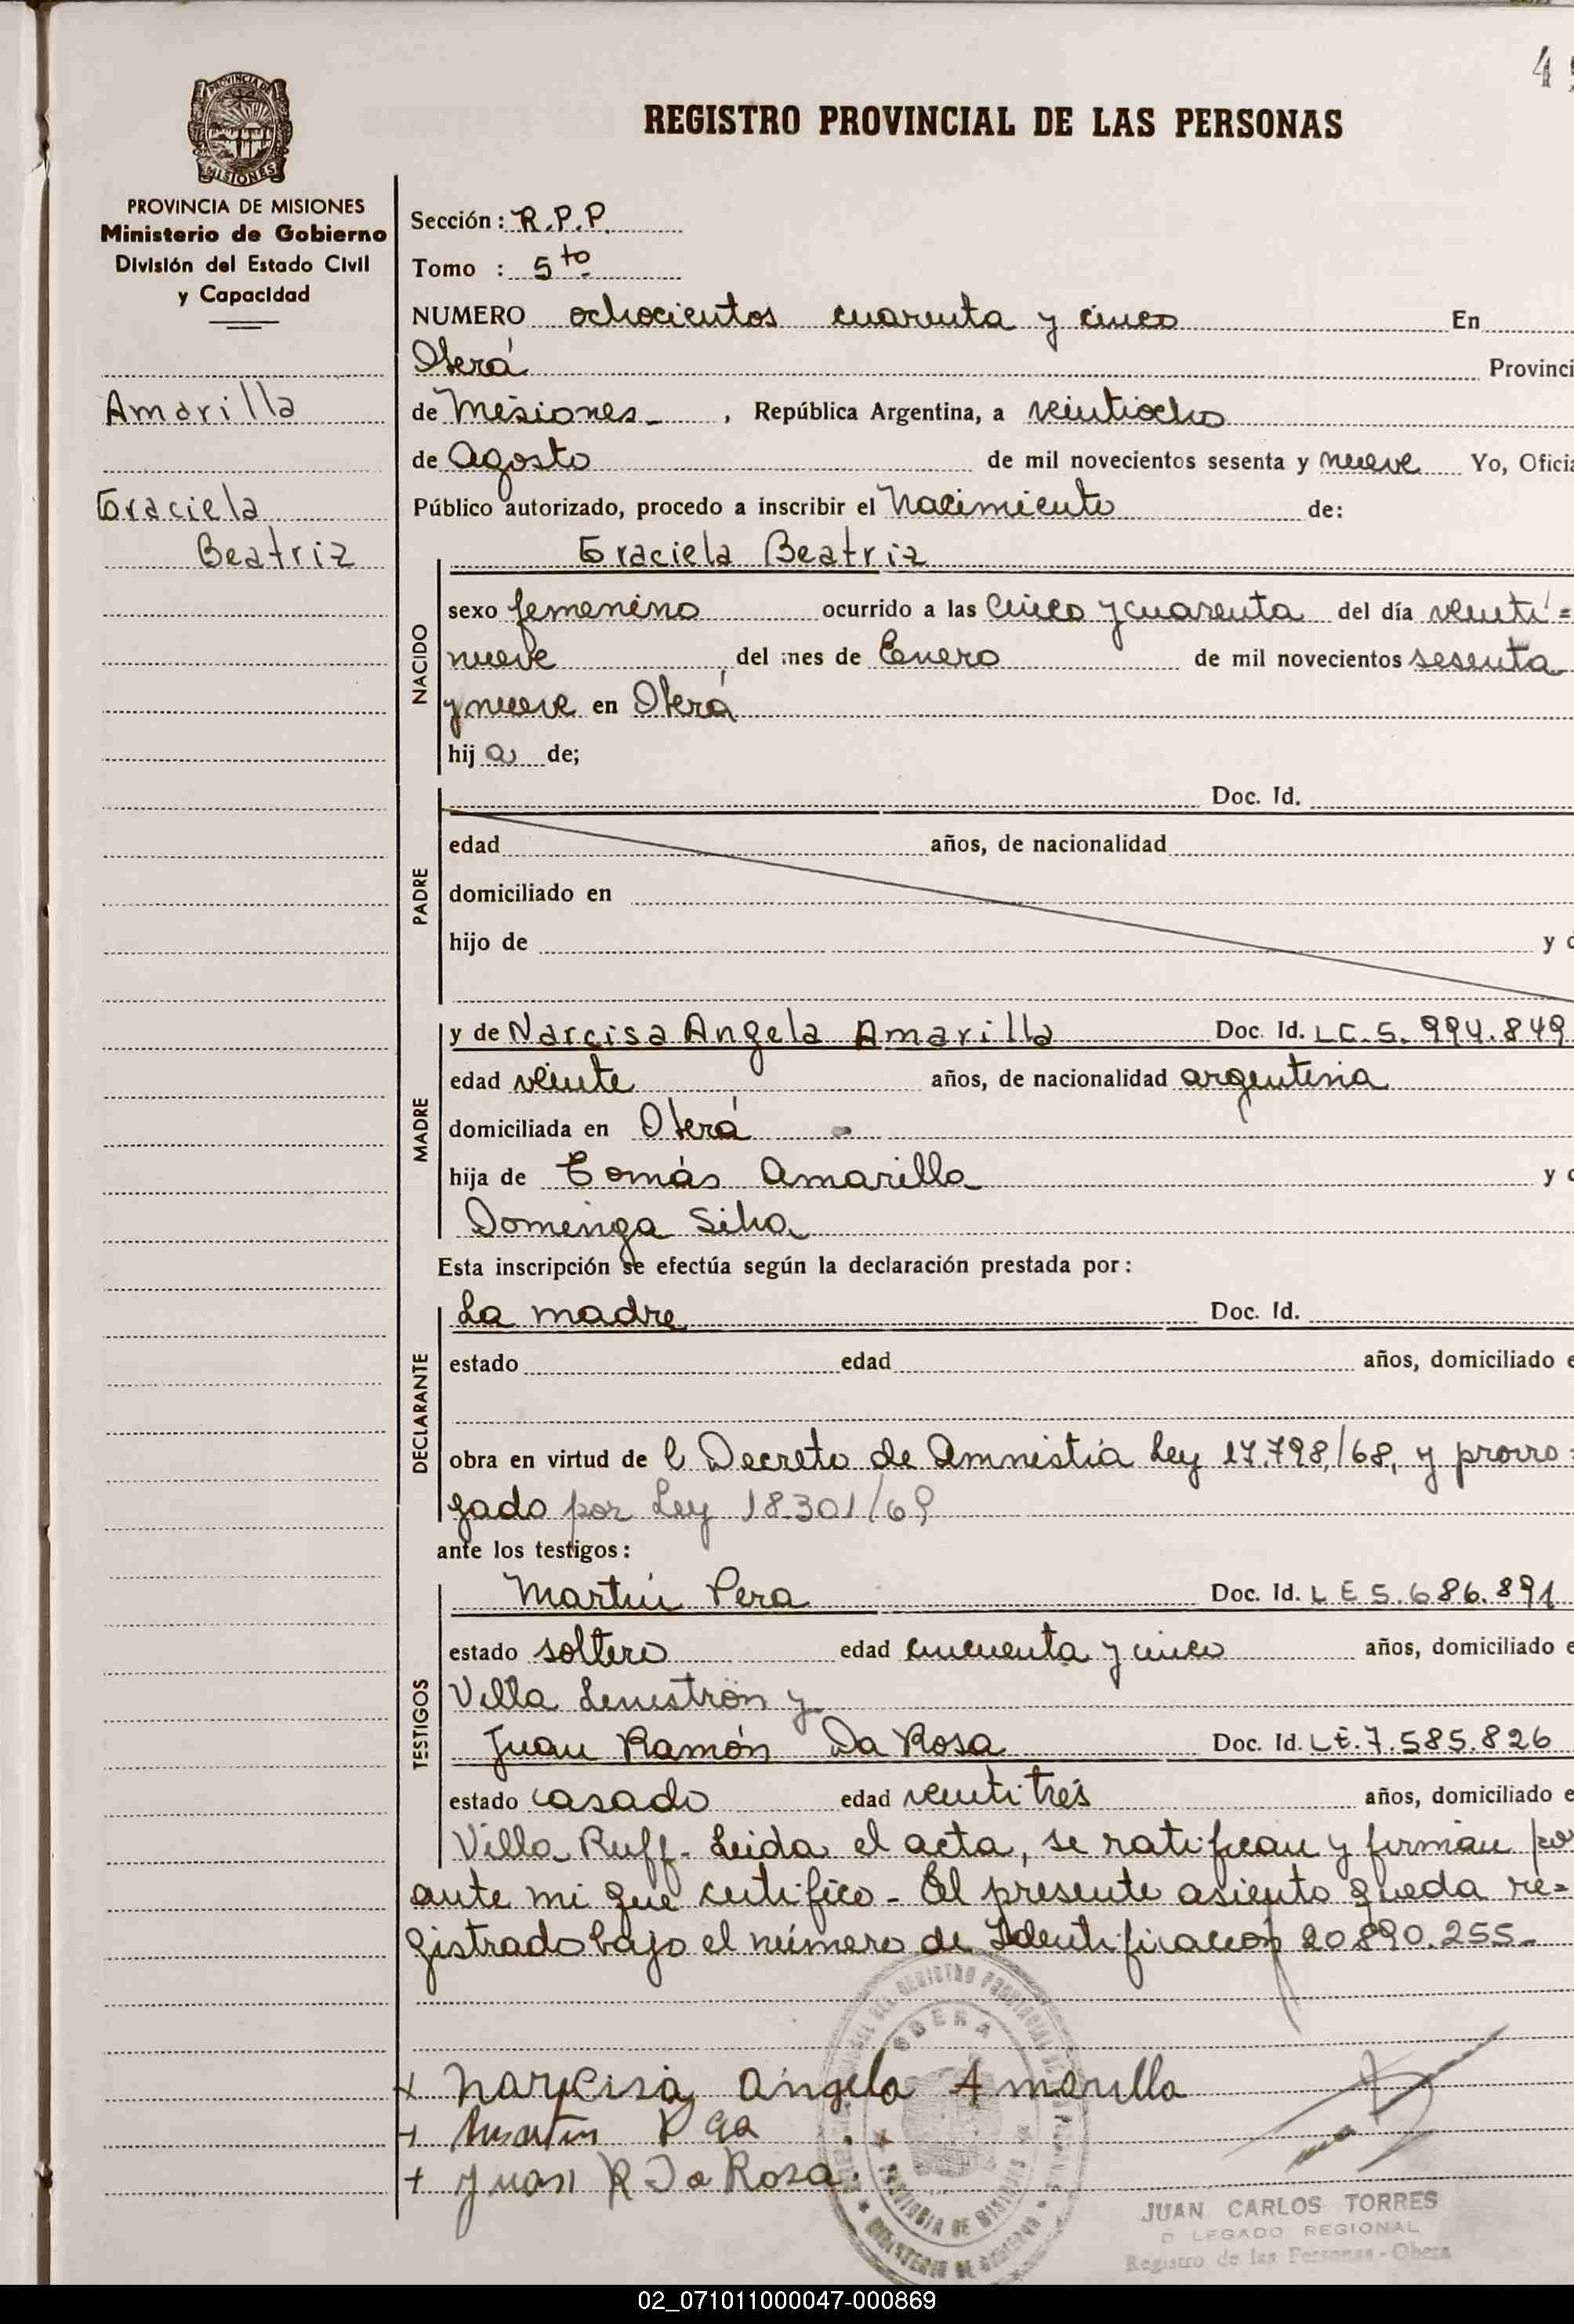 4
REGISTRO PROVINCIAL DE LAS PERSONAS
PROVINCIA DE
MISIONES
PROVINCIA DE MISIONES
Ministerio de Gobierno
División del Estado Civil
y Capacidad
Amarilla
Graciela
Beatriz
Sección: R.P.P.
Tomo : 5to
NUMERO ochocientos cuarenta y cinco En
Oberá Provinci
de Misiones , República Argentina, a veintiocho
de Agosto de mil novecientos sesenta y nueve Yo, Oficia
Público autorizado, procedo a inscribir el Nacimiento de:
NACIDO
Graciela Beatriz
sexo femenino ocurrido a las cinco y cuarenta del día veinti=
nueve del mes de Enero de mil novecientos sesenta
y nueve en Oberá
hij a de;
PADRE
Doc. Id.
edad años, de nacionalidad
domiciliado en
hijo de y d
MADRE
y de Narcisa Angela Amarilla Doc. Id. LC. 5. 994.849
edad veinte años, de nacionalidad argentina
domiciliada en Oberá
hija de Tomás Amarilla y d
Dominga Silva
Esta inscripción se efectúa según la declaración prestada por:
DECLARANTE
La madre Doc. Id.
estado edad años, domiciliado e
obra en virtud de l Decreto de Amnistia Ley 17.798/68, y prorro=
gado por Ley 18.301/69
ante los testigos:
TESTIGOS
Martin Pera Doc. Id. L E 5.686.891
estado soltero edad cincuenta y cinco años, domiciliado e
Villa y
Juan Ramón Da Rosa Doc. Id. LE. 7.585.826
estado casado edad veintitrés años, domiciliado e
Villa Ruff. Leida el acta, se ratifican y firman por
ante mi que certifico - El presente asiento queda re=
gistrado bajo el número de Identificación 20.890.255-
OBERA
PROVINCIA DE MISIONES
MINISTERIO DE GOBIERNO
+ Narcisa Angela Amarilla
+ Martin
+ Juan R Da Rosa
JUAN CARLOS TORRES
D LEGADO REGIONAL
Registro de las Personas - Obera
02_071011000047-000869